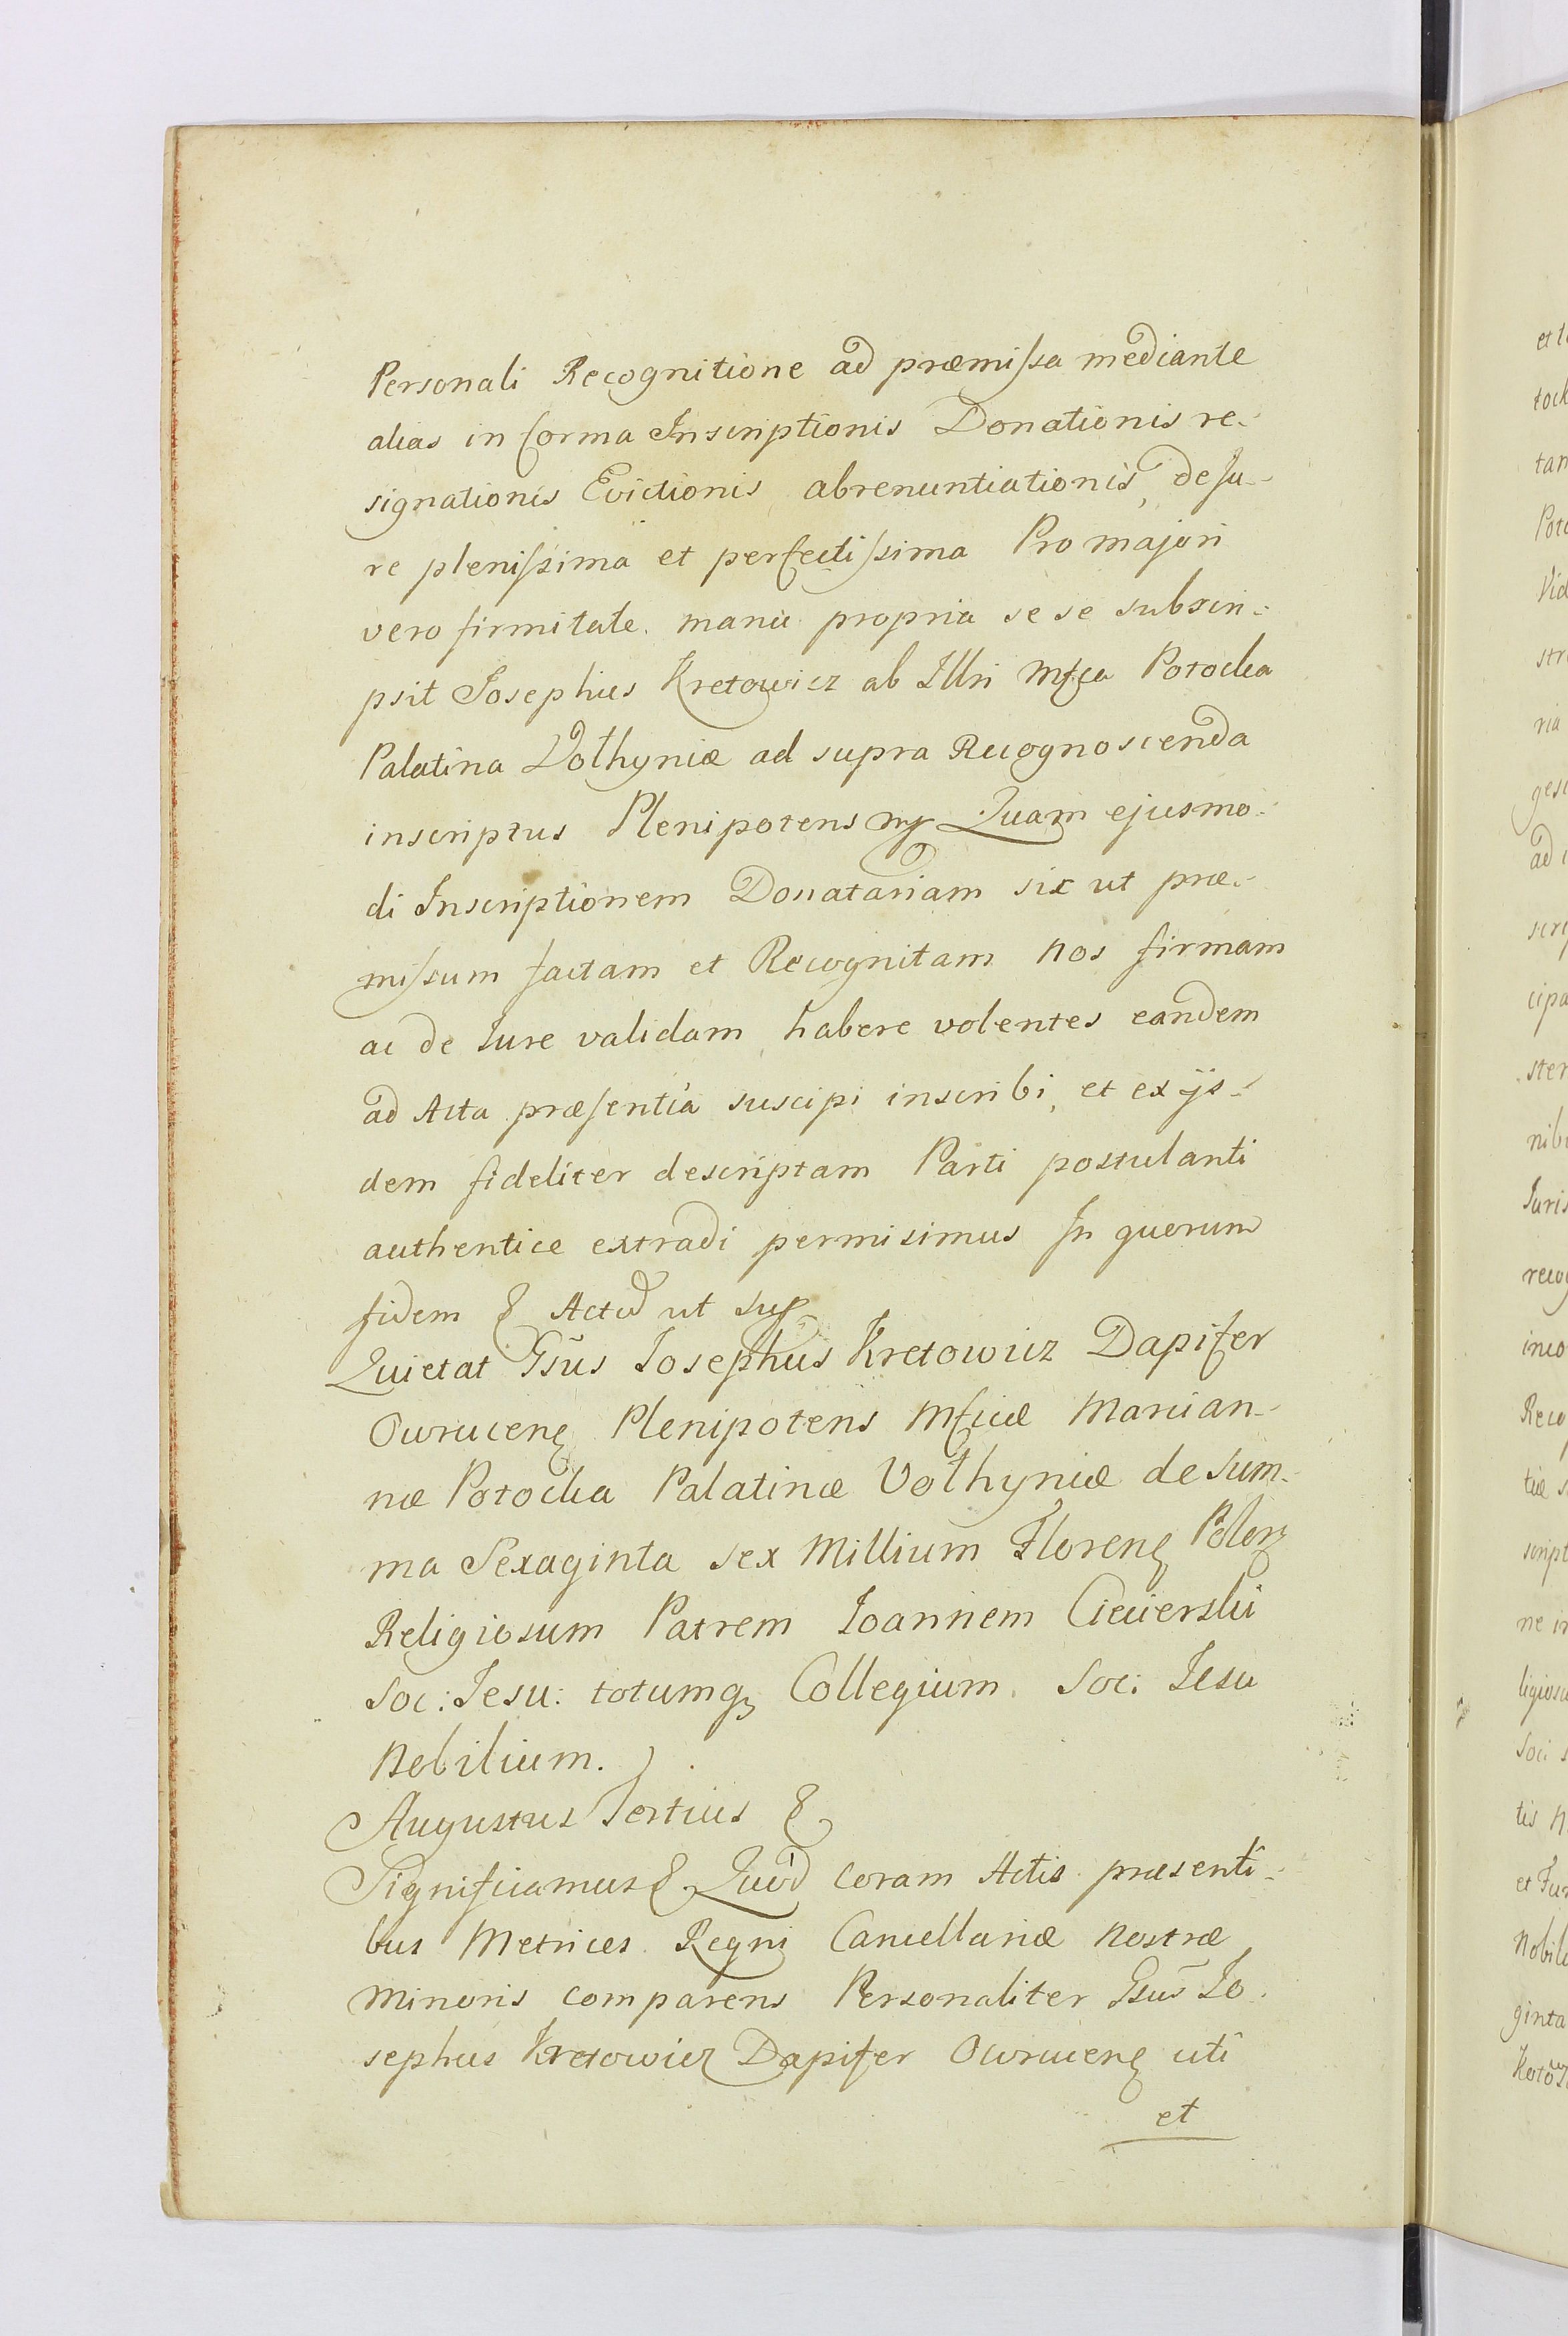 Personali Recognitione ad præmissa mediante
alias in forma Inscriptionis Donationis re-
signationis Evictionis abrenuntiationis, de Ju-
re plenissima et perfectissima Pro majori
vero firmitate manu propria se se subscri-
psit Josephus Kretowicz ab Illri Mfca Potocka
Palatina Volhyniæ ad supra Recognoscenda
inscriptus Plenipotens mp Quam ejusmo-
di Inscriptionem Donatariam sic ut præ-
missum factam et Recognitam Nos firmam
ac de Jure validam, habere volentes eandem
ad Acta præsentia suscipi inscribi, et ex ijs-
dem fideliter descriptam Parti postulanti
authentice extradi permisimus In quorum
fidem & Actū ut sup
Quietat Gsūs Josephus Kretowicz Dapifer
Owrucens Plenipotens Mficæ Marian-
næ Potocka Palatinæ Volhyniæ de sum-
ma Sexaginta sex Millium Floren Polon
Religiosum Patrem Joannem Ciecierski
Soc: Jesu: totumq Collegium Soc: Jesu
Nobilium.
Augustus Tertius &
Significamus & Quòd coram Actis præsenti-
bus Metrices Regni Cancellariæ Nostræ
Minoris comparens Personaliter Gsūs Jo-
sephus Kretowicz Dapifer Owrucens uti
et